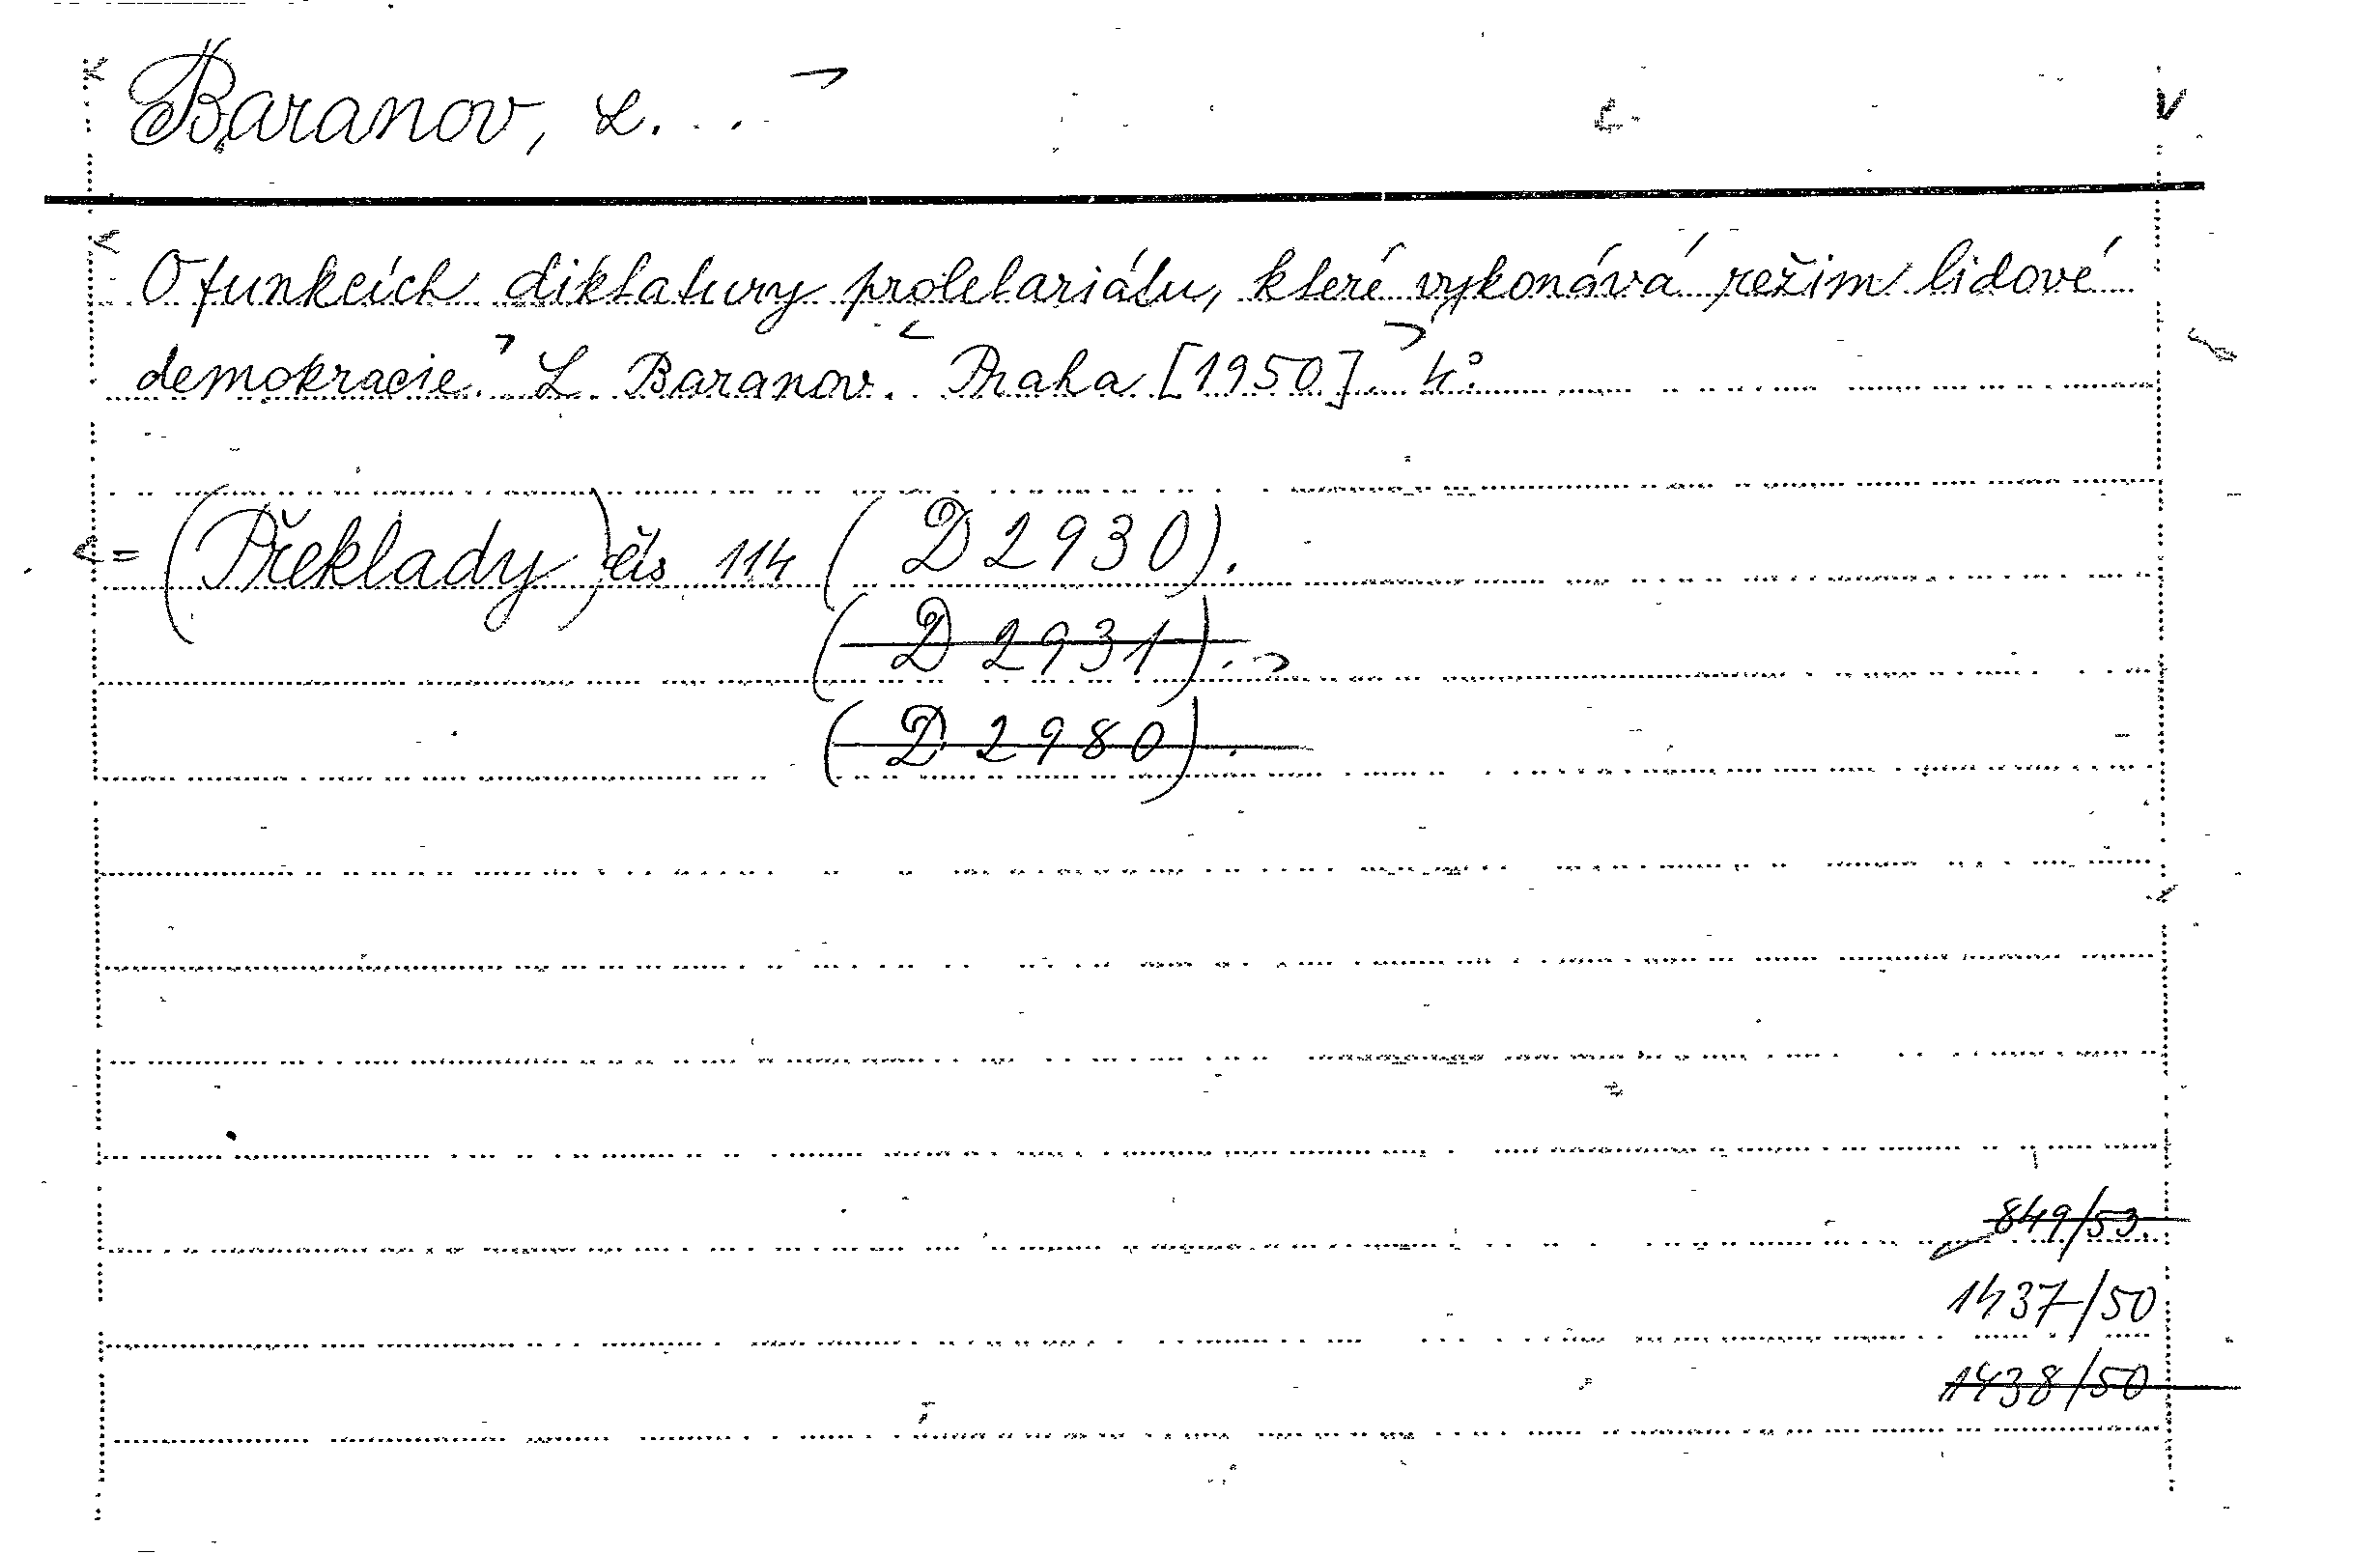 Baranov, L. . .
O funkcích diktatury proletariátu, které vykonává režim lidové
demokracie. L. Baranov. Praha [1950]. 4°.
= (Překlady) čís 114 (D 2930).
(D 2931).
(D 2980).
849/53.
1437/50
1438/50